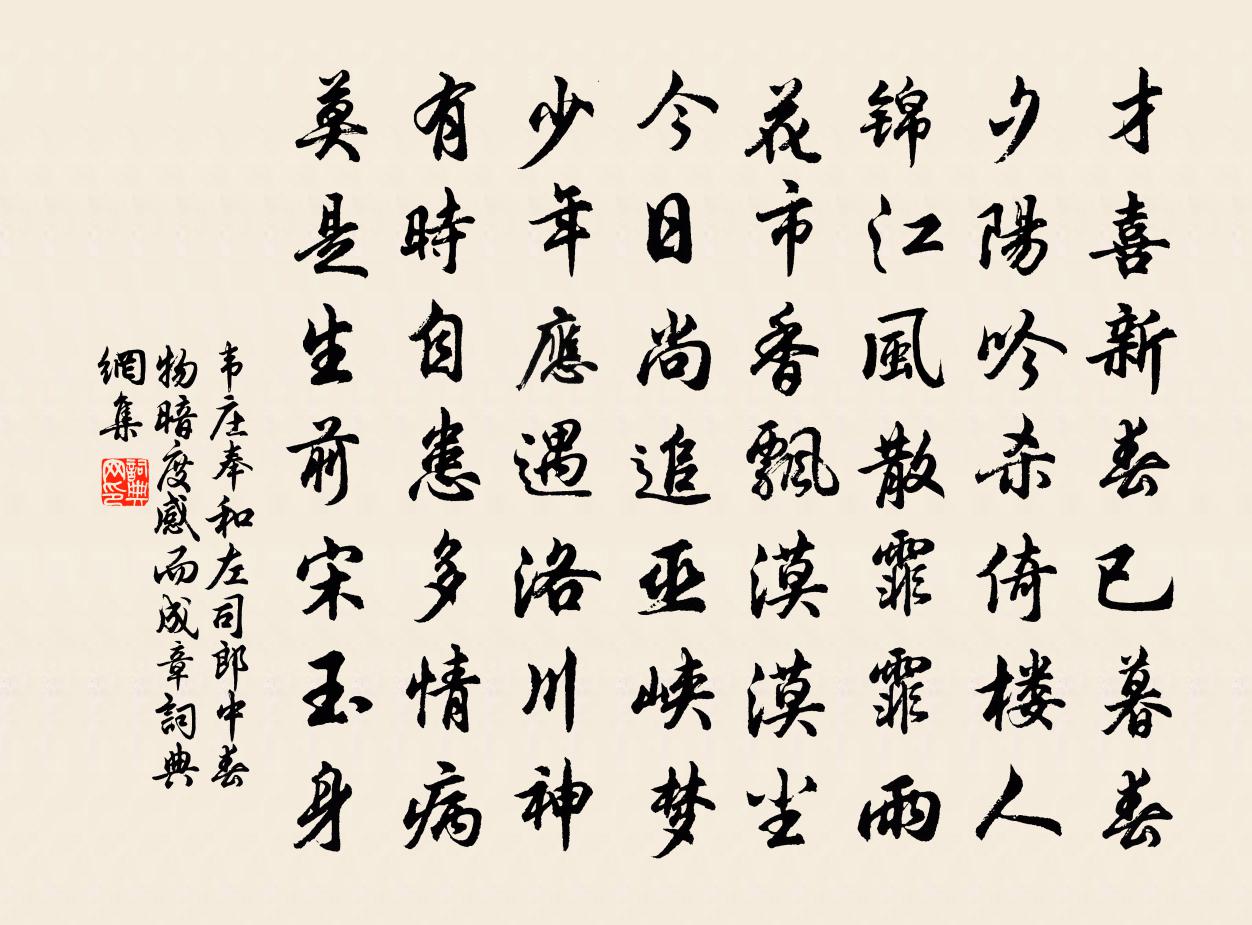 才喜新春已暮春
夕陽吟杀倚楼人
锦江風散霏霏雨
花市香飄漠漠尘
今日尚追巫峡梦
少年應遇洛川神
有時自患多情病
莫是生前宋玉身
韦庄奉和左司郎中春
物暗度感而成章詞典
網集
詞典网印